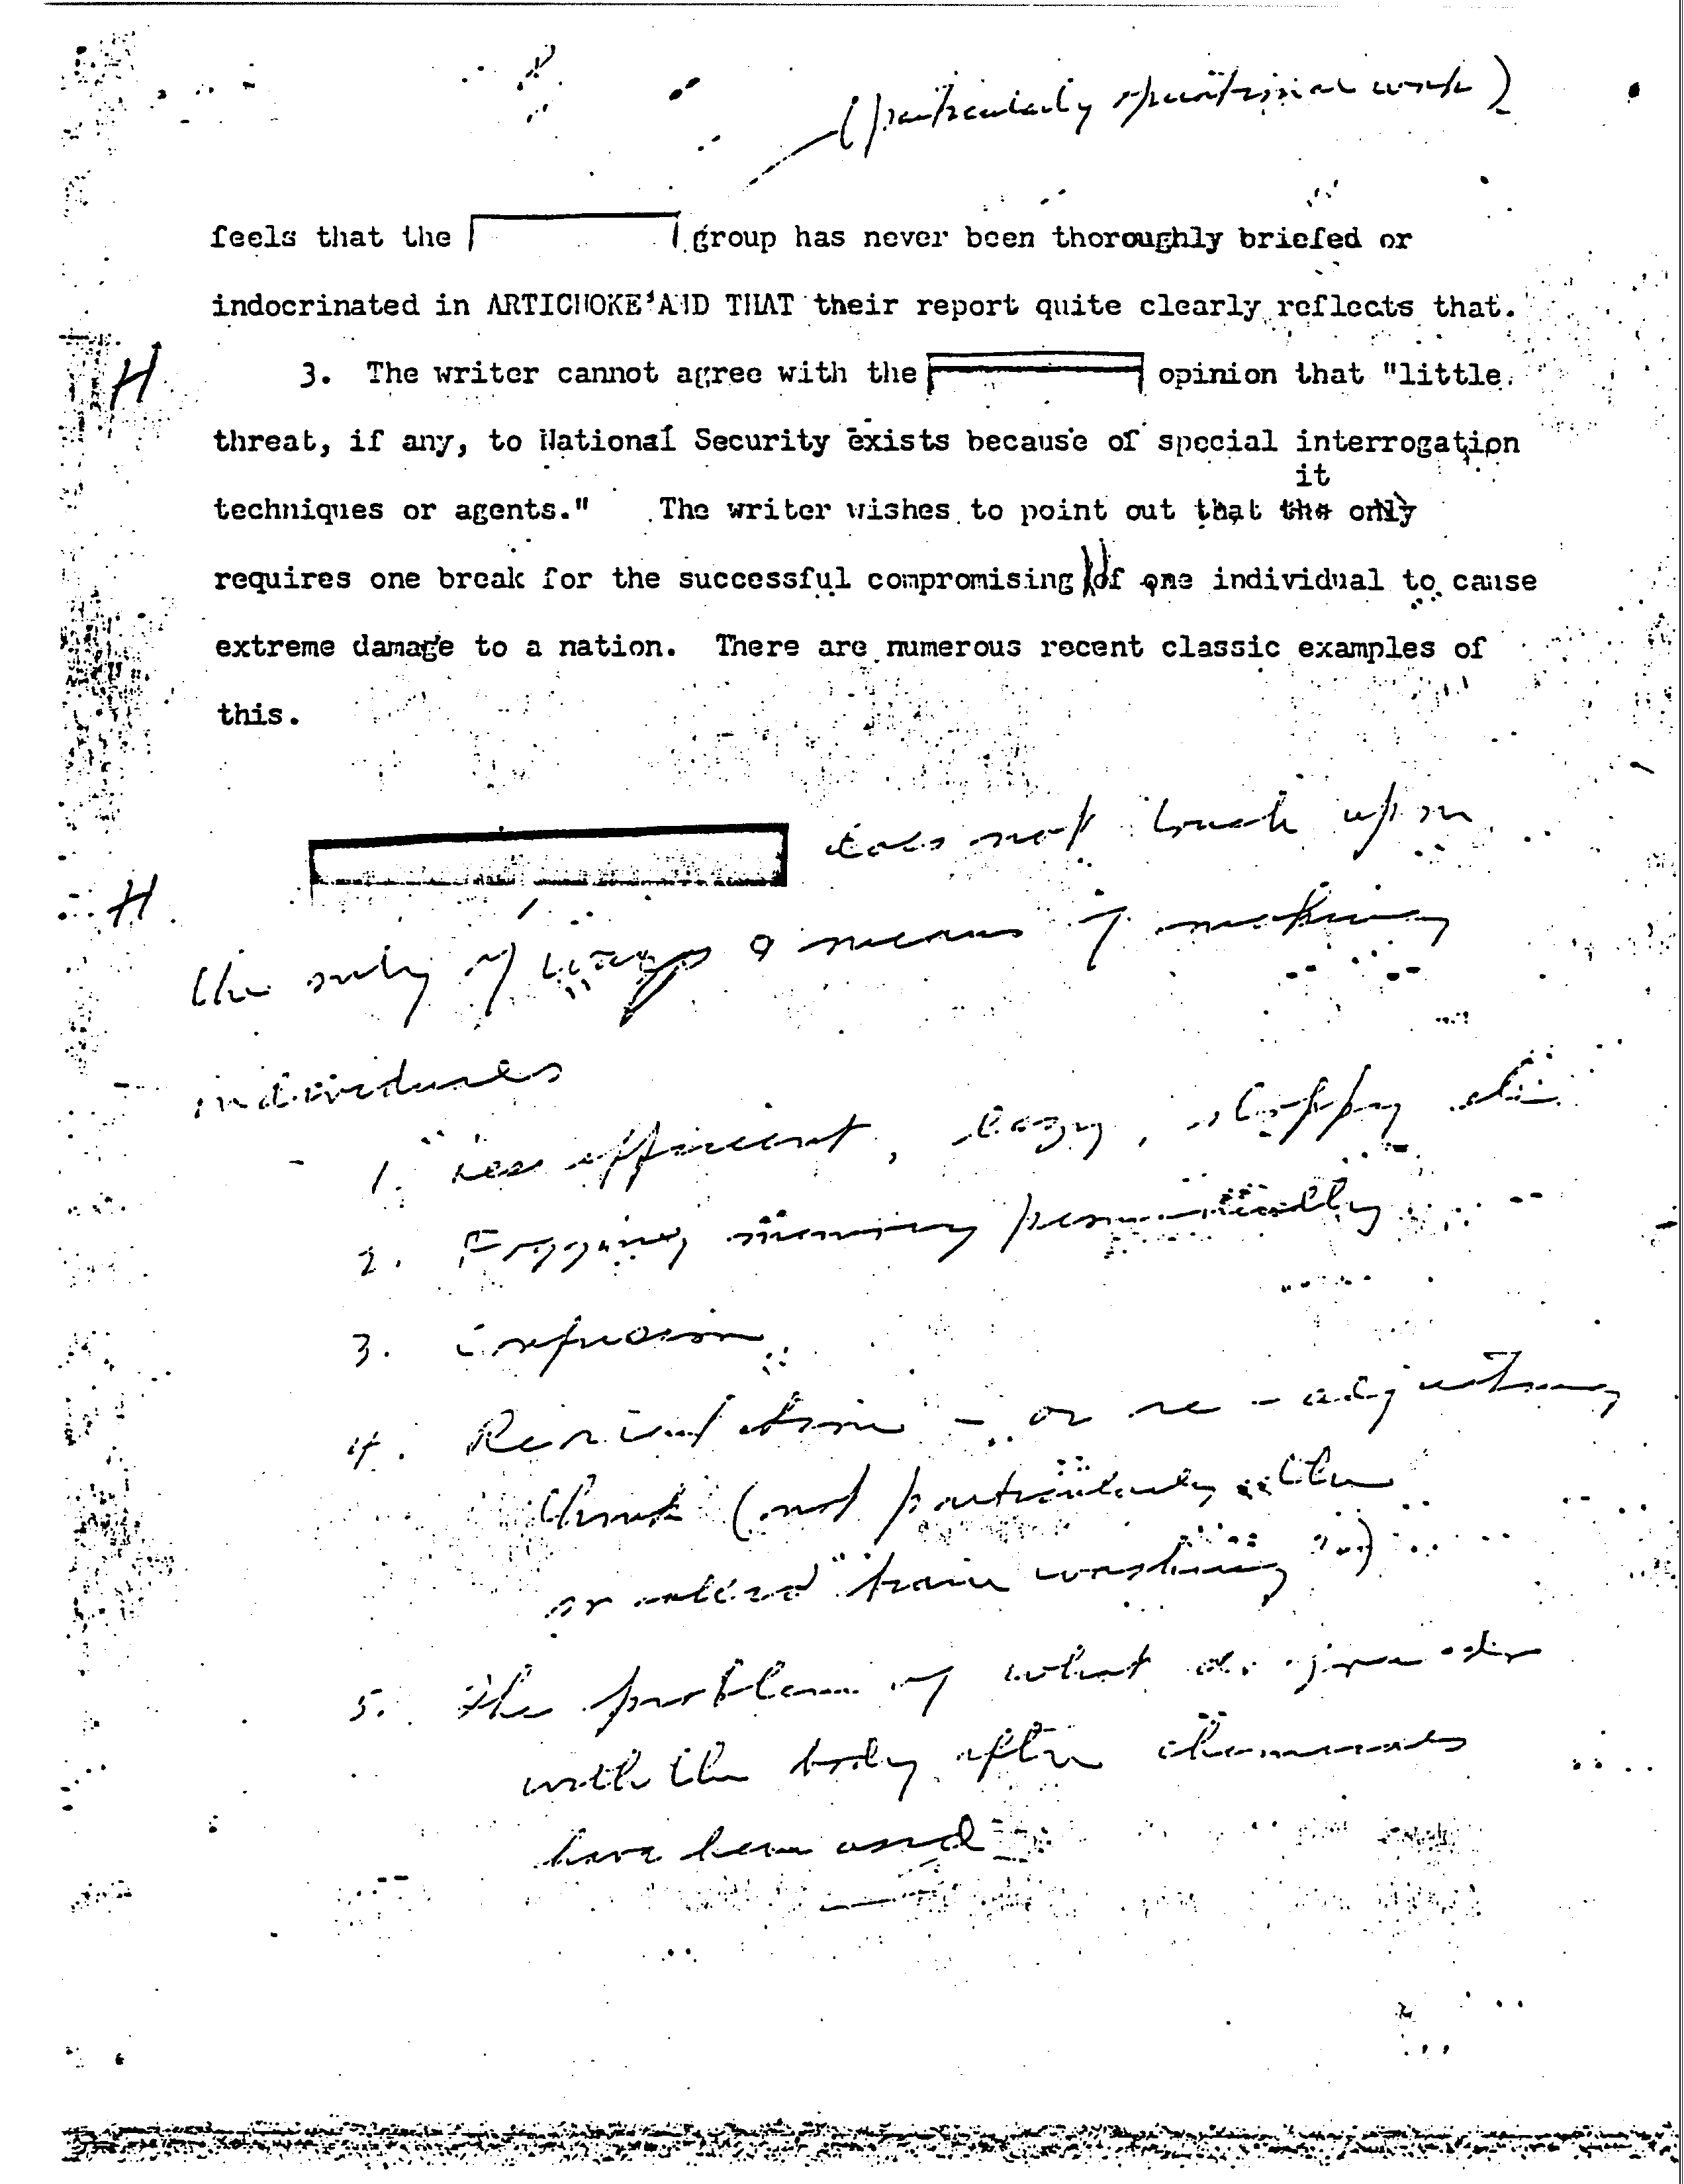 (particularly operational work)
feels that the group has never been thoroughly briefed or
indocrinated in ARTICHOKE AND THAT their report quite clearly reflects that.
H
3. The writer cannot agree with the opinion that "little
threat, if any, to National Security exists because of special interrogation
it
techniques or agents." The writer wishes to point out that the only
requires one break for the successful compromising of one individual to cause
extreme damage to a nation. There are numerous recent classic examples of
this.
does not touch upon
H
the study of ways & means of making
individuals
1. Less efficient, lazy, sloppy etc
2. Fogging memory permanently
3. Confusion
4. or re-adjusting
(not particularly the
so called "brain washing")
5. The problem of what do you do
with the body after chemicals
have been used